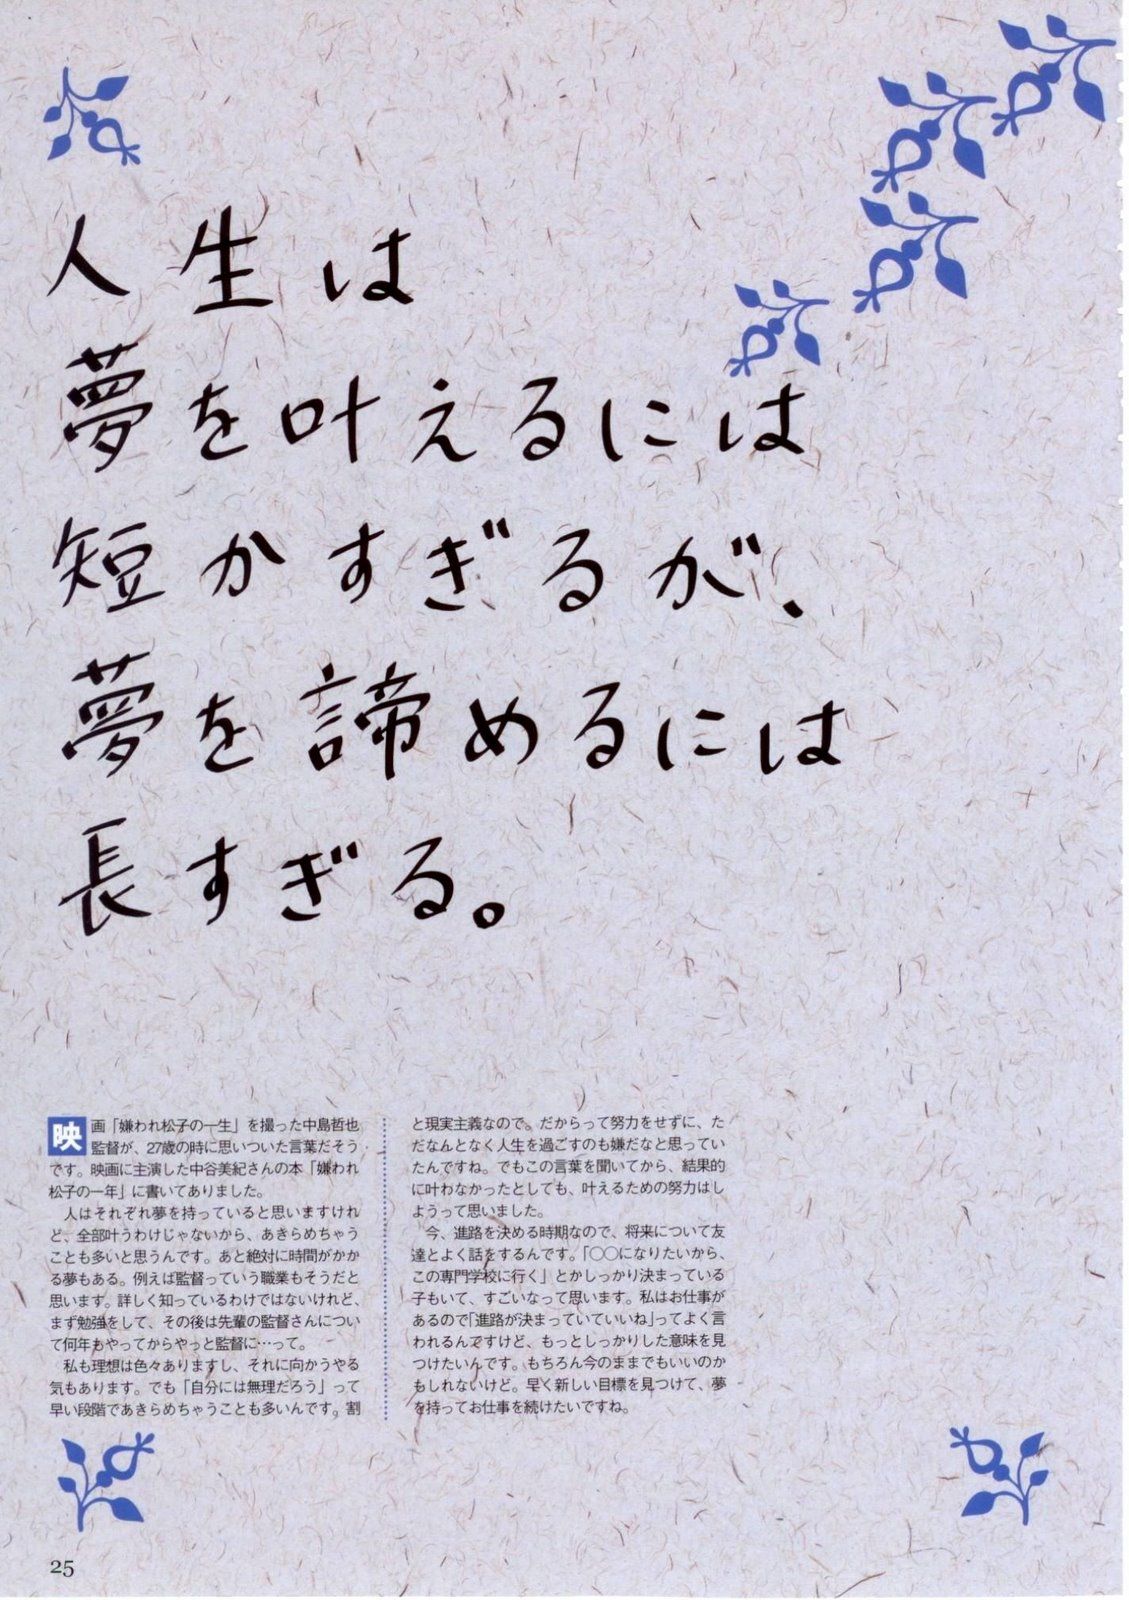 人生は
夢を叶えるには
短かすぎるが、
夢を諦めるには
長すぎる。
映画「嫌われ松子の一生」を撮った中島哲也
監督が、27歳の時に思いついた言葉だそう
です。映画に主演した中谷美紀さんの本「嫌われ
松子の一年」に書いてありました。
人はそれぞれ夢を持っていると思いますけれ
ど、全部叶うわけじゃないから、あきらめちゃう
ことも多いと思うんです。あと絶対に時間がかか
る夢もある。例えば監督っていう職業もそうだと
思います。詳しく知っているわけではないけれど、
まず勉強をして、その後は先輩の監督さんについ
て何年もやってからやっと監督に…って。
私も理想は色々ありますし、それに向かうやる
気もあります。でも「自分には無理だろう」って
早い段階であきらめちゃうことも多いんです。割
と現実主義なので。だからって努力をせずに、た
だなんとなく人生を過ごすのも嫌だなと思ってい
たんですね。でもこの言葉を聞いてから、結果的
に叶わなかったとしても、叶えるための努力はし
ようって思いました。
今、進路を決める時期なので、将来について友
達とよく話をするんです。「○○になりたいから、
この専門学校に行く」とかしっかり決まっている
子もいて、すごいなって思います。私はお仕事が
あるので「進路が決まっていていいね」ってよく言
われるんですけど、もっとしっかりした意味を見
つけたいんです。もちろん今のままでもいいのか
もしれないけど。早く新しい目標を見つけて、夢
を持ってお仕事を続けたいですね。
25